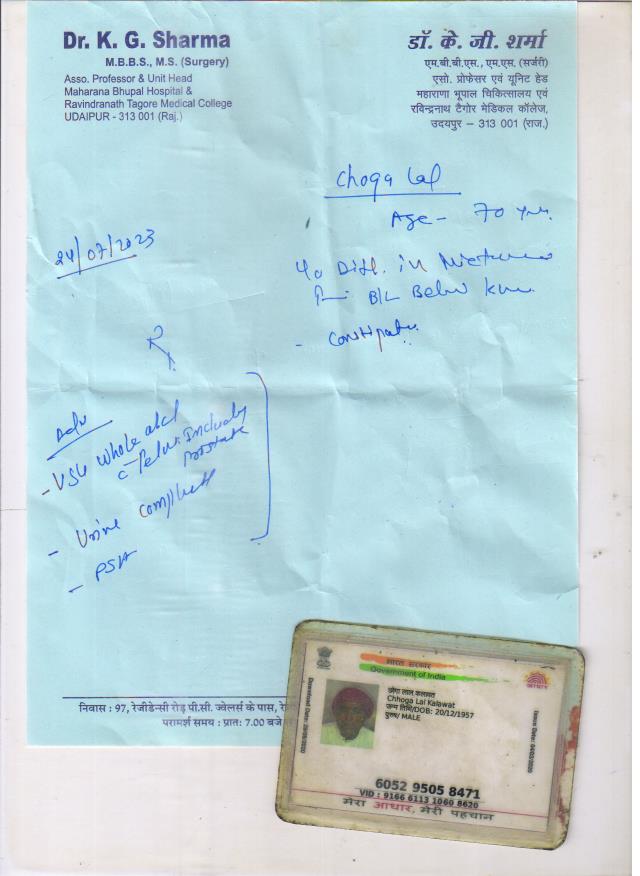 Dr. K. G. Sharma
M.B.B.S., M.S. (Surgery)
Asso. Professor & Unit Head
Maharana Bhupal Hospital &
Ravindranath Tagore Medical College
UDAIPUR - 313 001 (Raj.)
डॉ. के. जी. शर्मा
एम.बी.बी.एस., एम.एस. (सर्जरी)
एसो. प्रोफेसर एवं यूनिट हेड
महाराणा भूपाल चिकित्सालय एवं
रविन्द्रनाथ टैगोर मेडिकल कॉलेज,
उदयपुर – 313 001 (राज.)
Choga Lal
Age - 70 yrs.
24/07/2023
in
B/L
-
Rx
Adv
- USG Whole abd
Pelvis Including
prostate
- Urine Complete
- PSA
निवास : 97, रेजीडेन्सी रोड़ पी.सी. ज्वेलर्स के पास,
परामर्श समय : प्रात: 7.00 बजे
भारत सरकार
Government of India
छोगा लाल कलावत
Chhoga Lal Kalawat
जन्म तिथि/DOB: 20/12/1957
पुरुष/ MALE
6052 9505 8471
VID : 9166 6113 1060 8620
मेरा आधार, मेरी पहचान